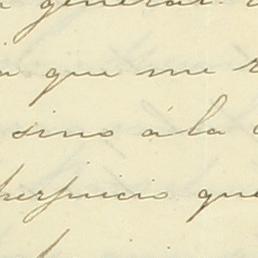 general
que me
sino á la
perjuicio que